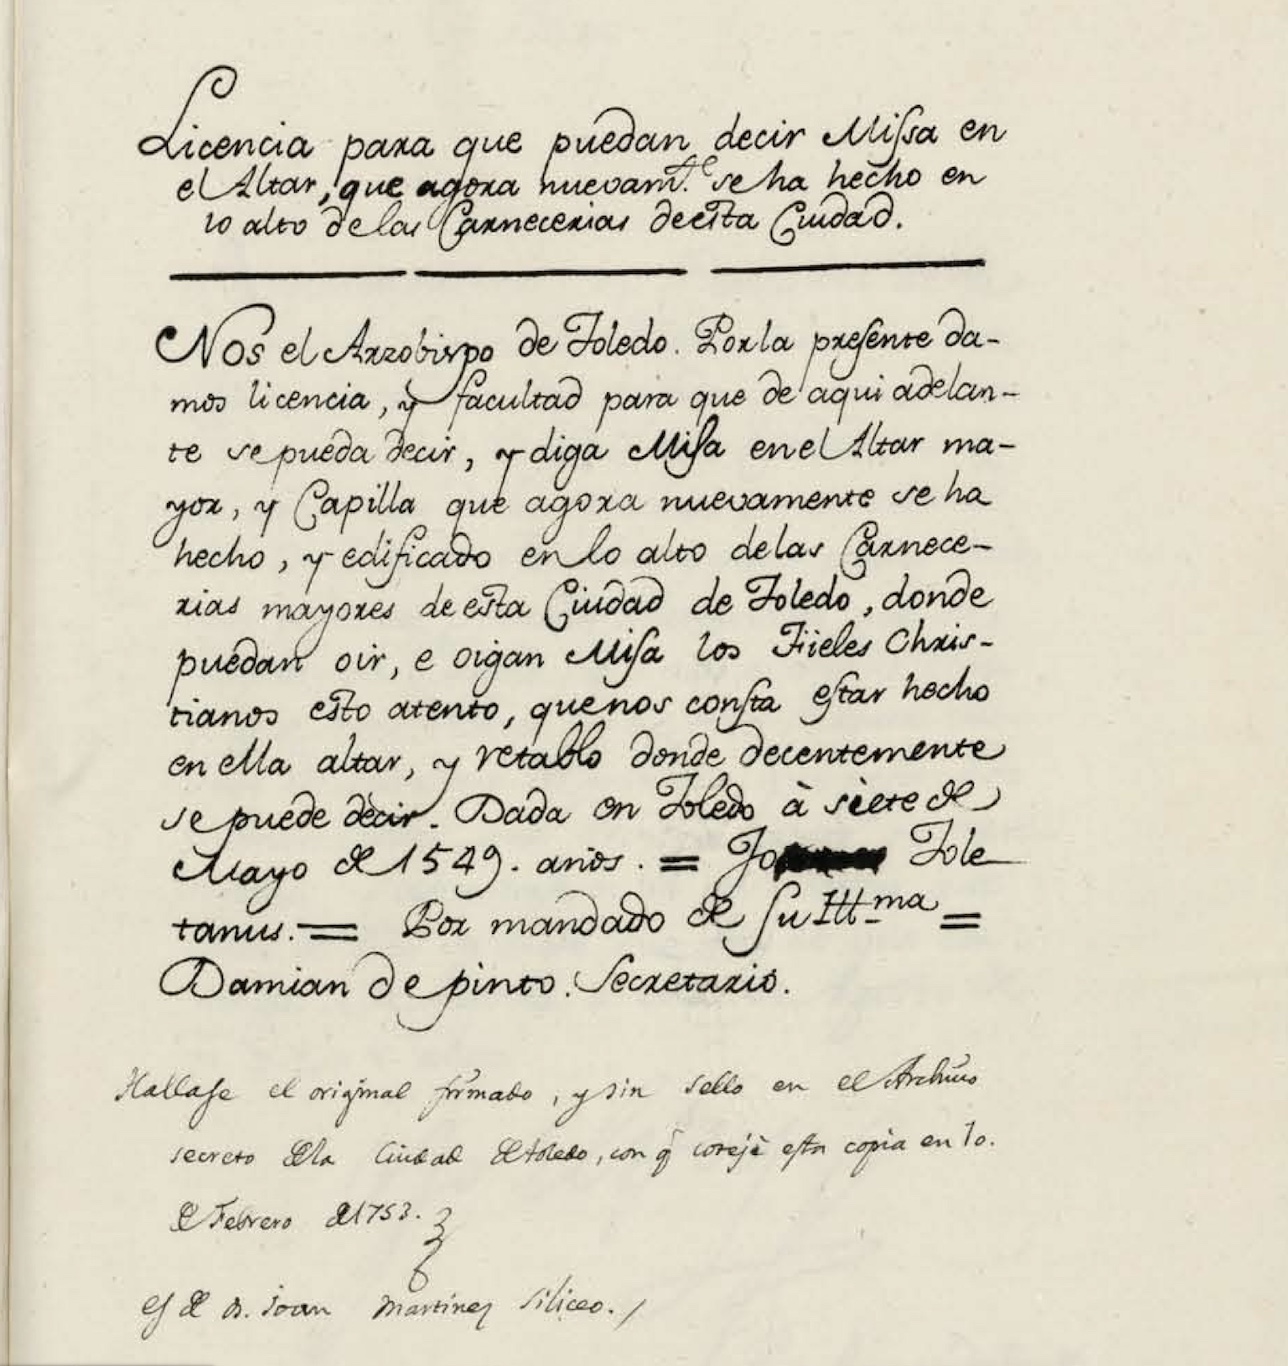 Licencia para que puedan decir Missa en
el Altar, que agora nuevam.te se ha hecho en
lo alto de las Carnecerias de esta Ciudad.
Nos el Arzobispo de Toledo. Por la presente da-
mos licencia, y facultad para que de aqui adelan-
te se pueda decir, y diga Misa en el Altar ma-
yor, y Capilla que agora nuevamente se ha
hecho, y edificado en lo alto de las Carnece-
rias mayores de esta Ciudad de Toledo, donde
puedan oir, e oigan Misa los Fieles Chris-
tianos esto atento, que nos consta estar hecho
en ella altar, y retablo donde decentemente
se puede decir. Dada en Toledo à siete de
Mayo de 1549. años. = Jo Tole
tanus. = Por mandado de Su Illma =
Damian de pinto. Secretario.
Hallase el original firmado, y sin sello en el Archivo
secreto de la Ciudad de toledo, con q̃ cotejè esta copia en 10.
de Febrero de 1753.
es de D. Joan Martinez Siliceo.